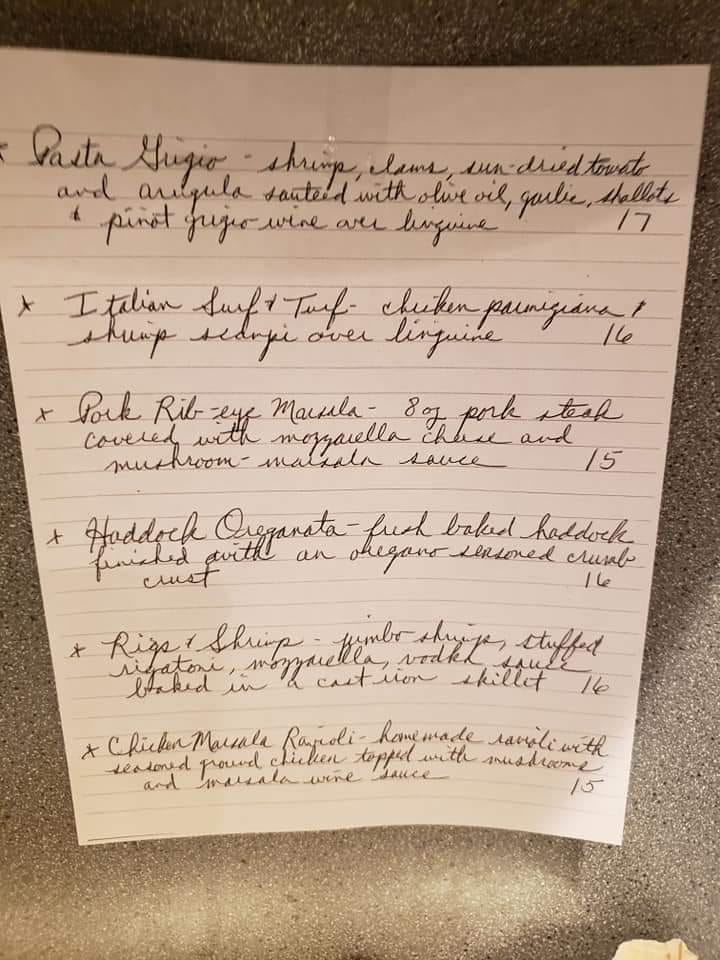 * Pasta Grigio - shrimp, clams, sun-dried tomato
and arugula sauteed with olive oil, garlic, shallots
& pinot grigio wine over linguine 17
* Italian Surf & Turf - chicken parmigiana &
shrimp scampi over linguine 16
* Pork Rib-eye Marsala - 8 oz pork steak
covered with mozzarella cheese and
mushroom-marsala sauce 15
* Haddock Oreganata - fresh baked haddock
finished with an oregano seasoned crumb
crust 16
* Rigs & Shrimp - jumbo shrimp, stuffed
rigatoni, mozzarella, vodka sauce
baked in a cast iron skillet 16
* Chicken Marsala Ravioli - homemade ravioli with
seasoned ground chicken topped with mushrooms
and marsala wine sauce 15